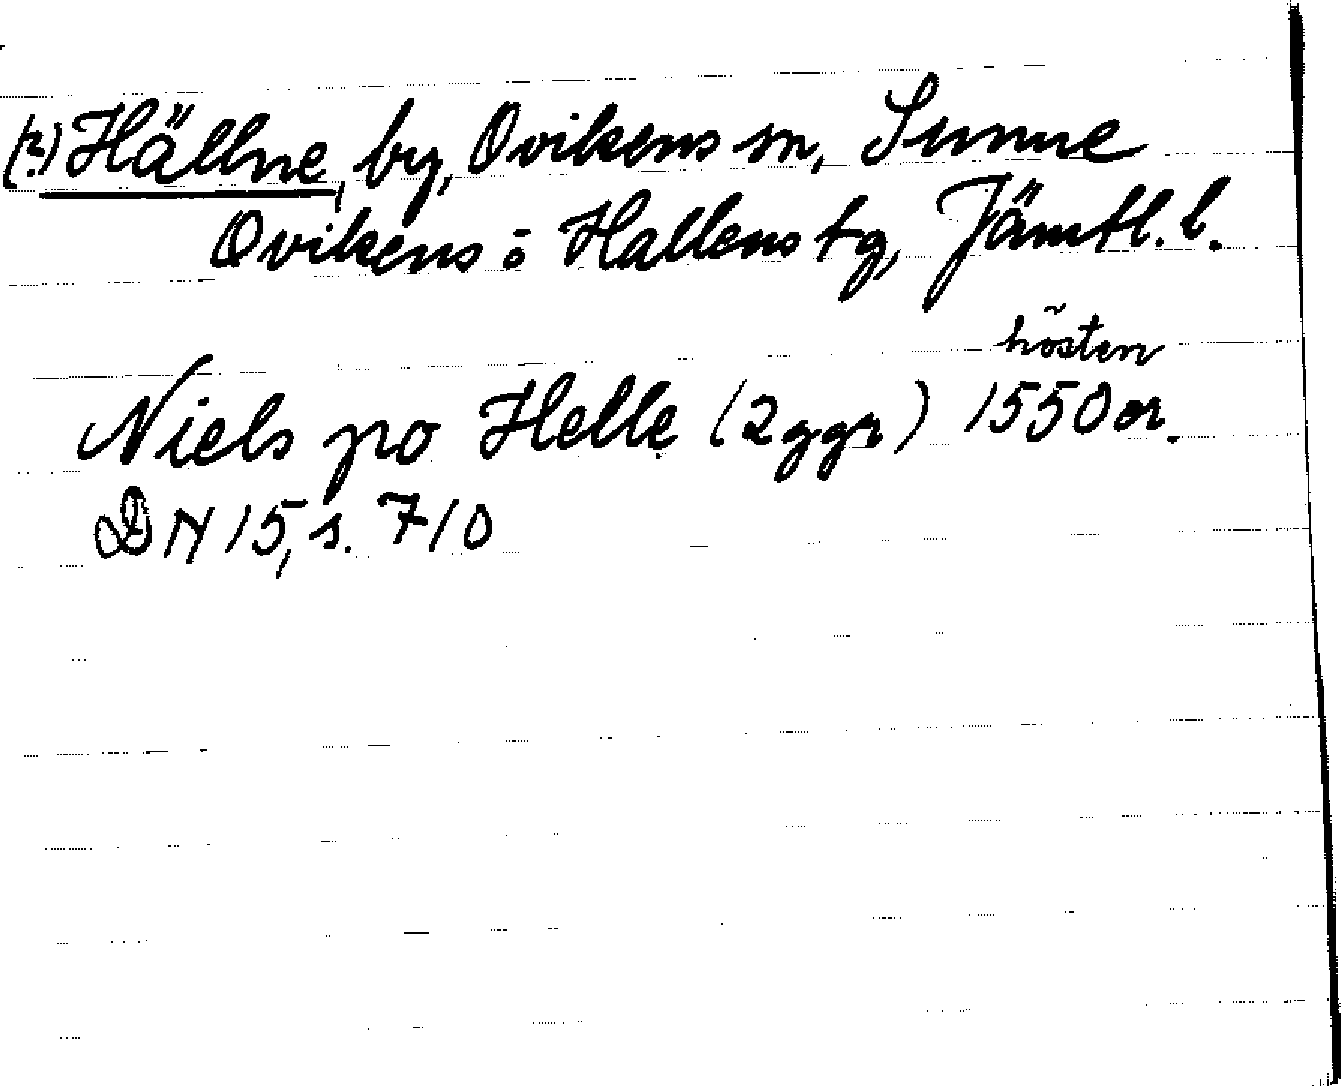 (?) Hällne, by, Ovikens sn, Sunne
Ovikens o Hallens tg, Jämtl. l.
hösten
Niels po Helle (2 ggr) 1550 or.
DN 15, s. 710